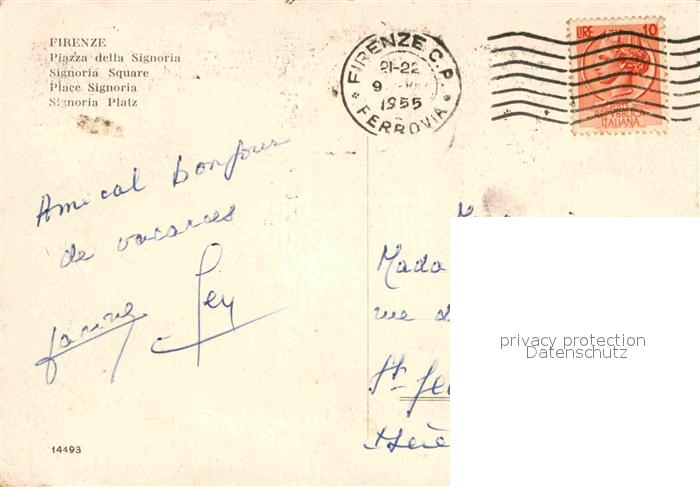 FIRENZE
Piazza della Signoria
Signoria Square
Place Signoria
Signoria Platz
FIRENZE C.P.
21-22
9
1955
FERROVIA
LIRE 10
REPVBBLICA
ITALIANA
Amical bonjour
de vacances
Mada
rue d
privacy protection
Datenschutz
St-
14493